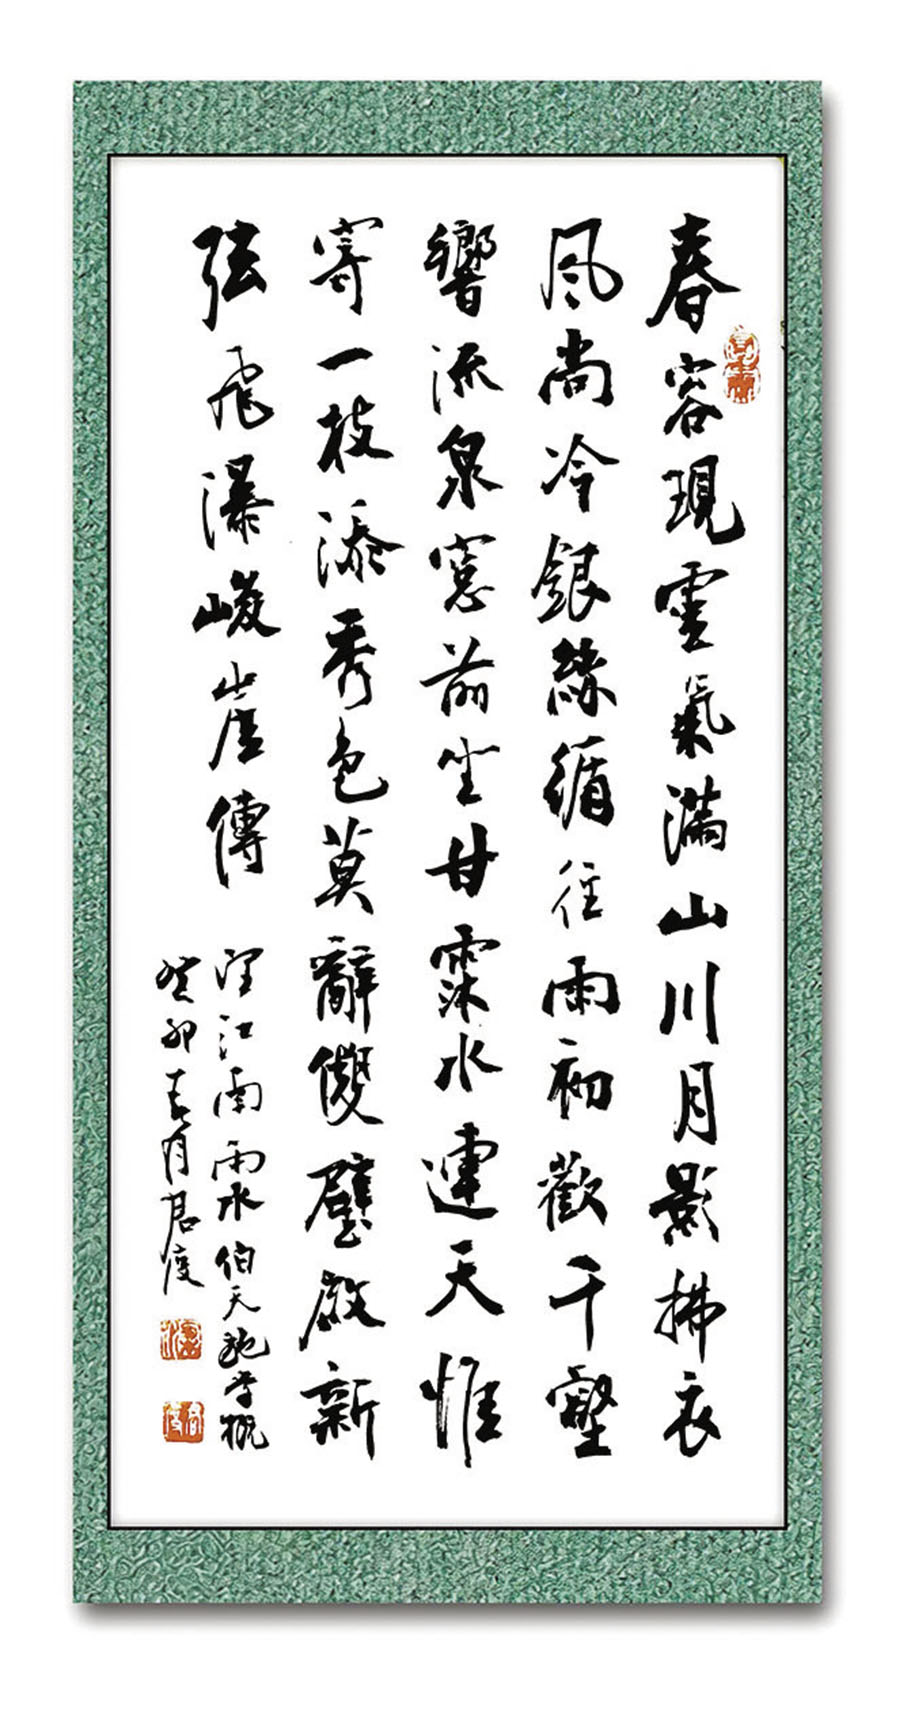 春容現雲氣滿山川月影拂衣
風尚冷銀絲循往雨初歡千壑
響流泉窓前坐甘霂水連天惟
寄一枝添秀色莫辭雙璧啟新
弦飛瀑峻崖傳
望江南雨水伯天
癸卯春月君度